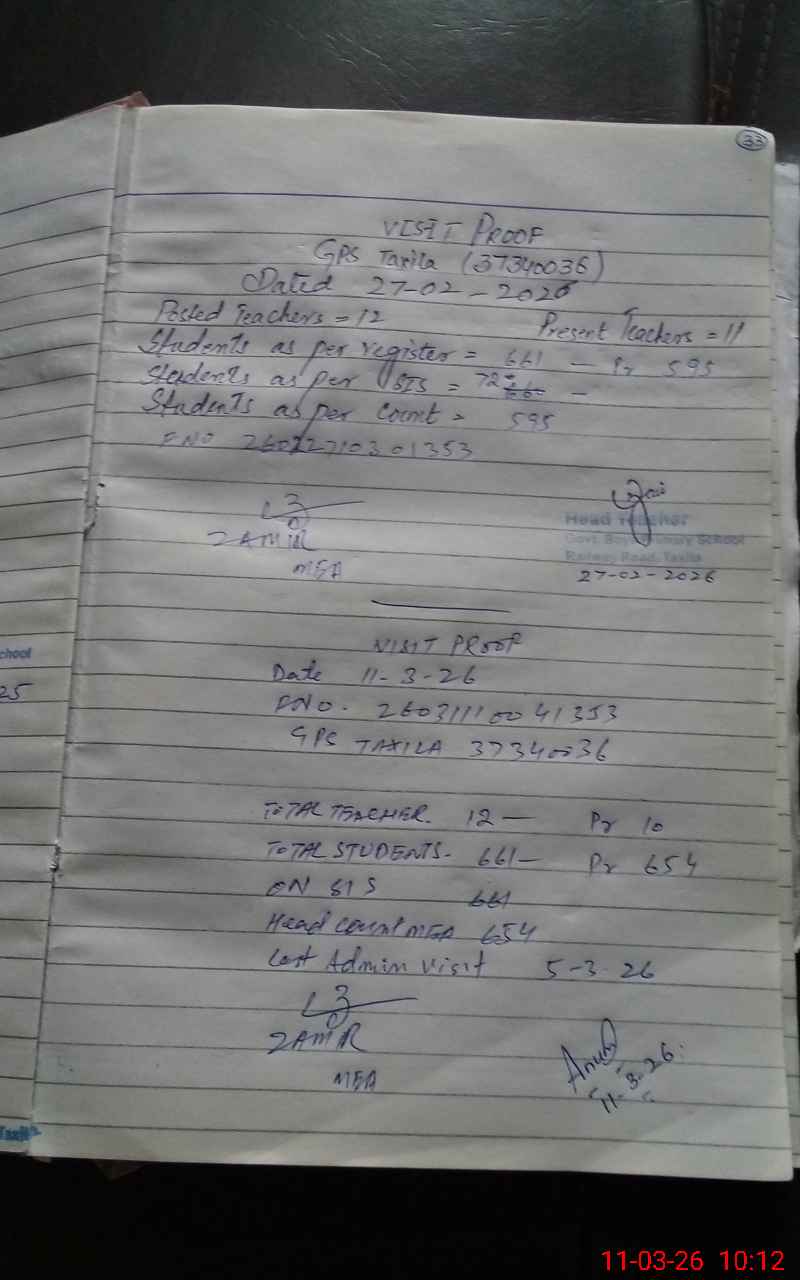 33
VISIT PROOF
GPS Taxila (37340036)
Dated 27-02-2026
Posted Teachers = 12 Present Teachers = 11
Students as per register = 661 — Pr 595
Students as per SIS = 72 —
Students as per Count = 595
F NO 26022710301353
ZAMIR
MEA
Head Teacher
Govt. Boys Primary School
Railway Road, Taxila
27-02-2026
VISIT PROOF
Date 11-3-26
FNO. 26031110041353
GPS TAXILA 37340036
TOTAL TEACHER. 12 — Pr 10
TOTAL STUDENTS- 661 — Pr 654
ON SIS 661
Head count MEA 654
Last Admin visit 5-3-26
ZAMIR
MEA
11-3-26.
chool
25
Taxila
11-03-26 10:12